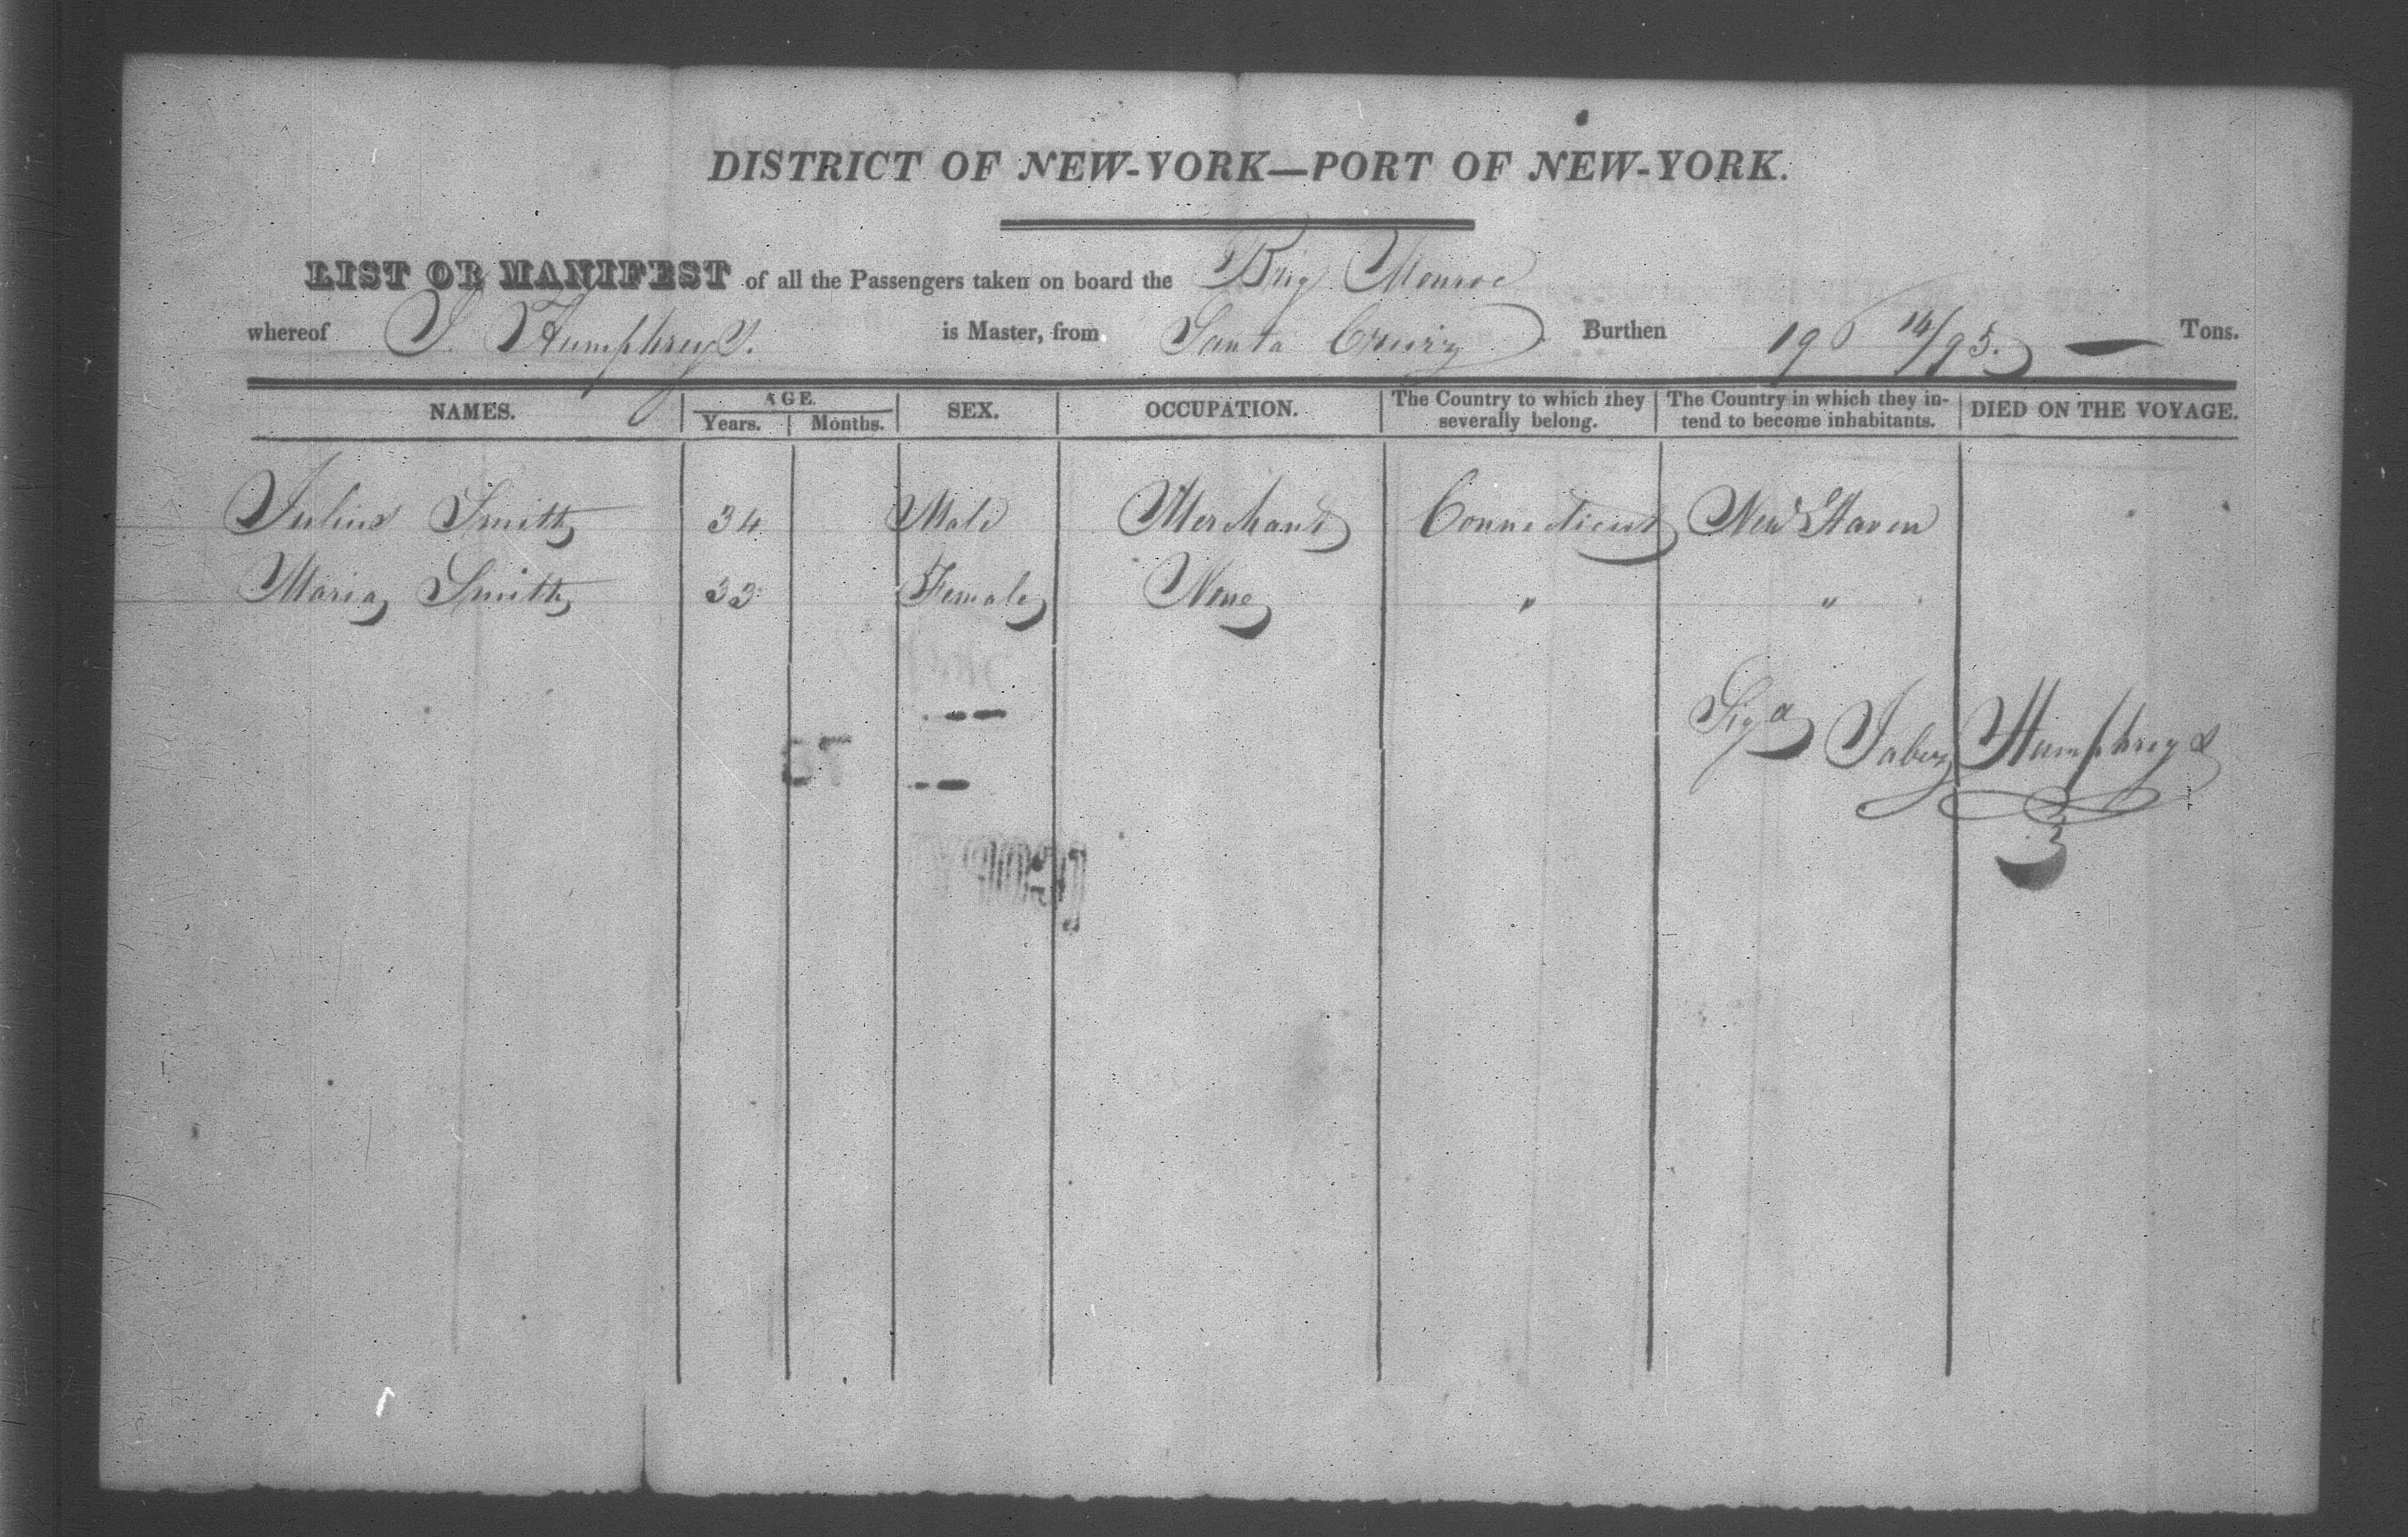 DISTRICT OF NEW-YORK—PORT OF NEW-YORK.
LIST OR MANIFEST of all the Passengers taken on board the Brig Monroe
whereof J. Humphreys. is Master, from Santa Cruiz Burthen 196 14/95. — Tons.
NAMES. AGE. Years. Months. SEX. OCCUPATION. The Country to which they severally belong. The Country in which they intend to become inhabitants. DIED ON THE VOYAGE.
Julius Smith 34 Male Merchant Connecticut New Haven
Maria Smith 33 Female None " "
Sigd Jabez Humphreys